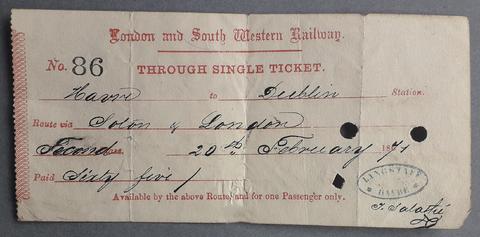 London and South Western Railway.
No. 86 THROUGH SINGLE TICKET.
Havre to Dublin Station.
Route via Soton & London
Second Class. 20th February 1871
Paid Sixty five /
Available by the above Route and for one Passenger only.
LANGSTAFF
HAVRE